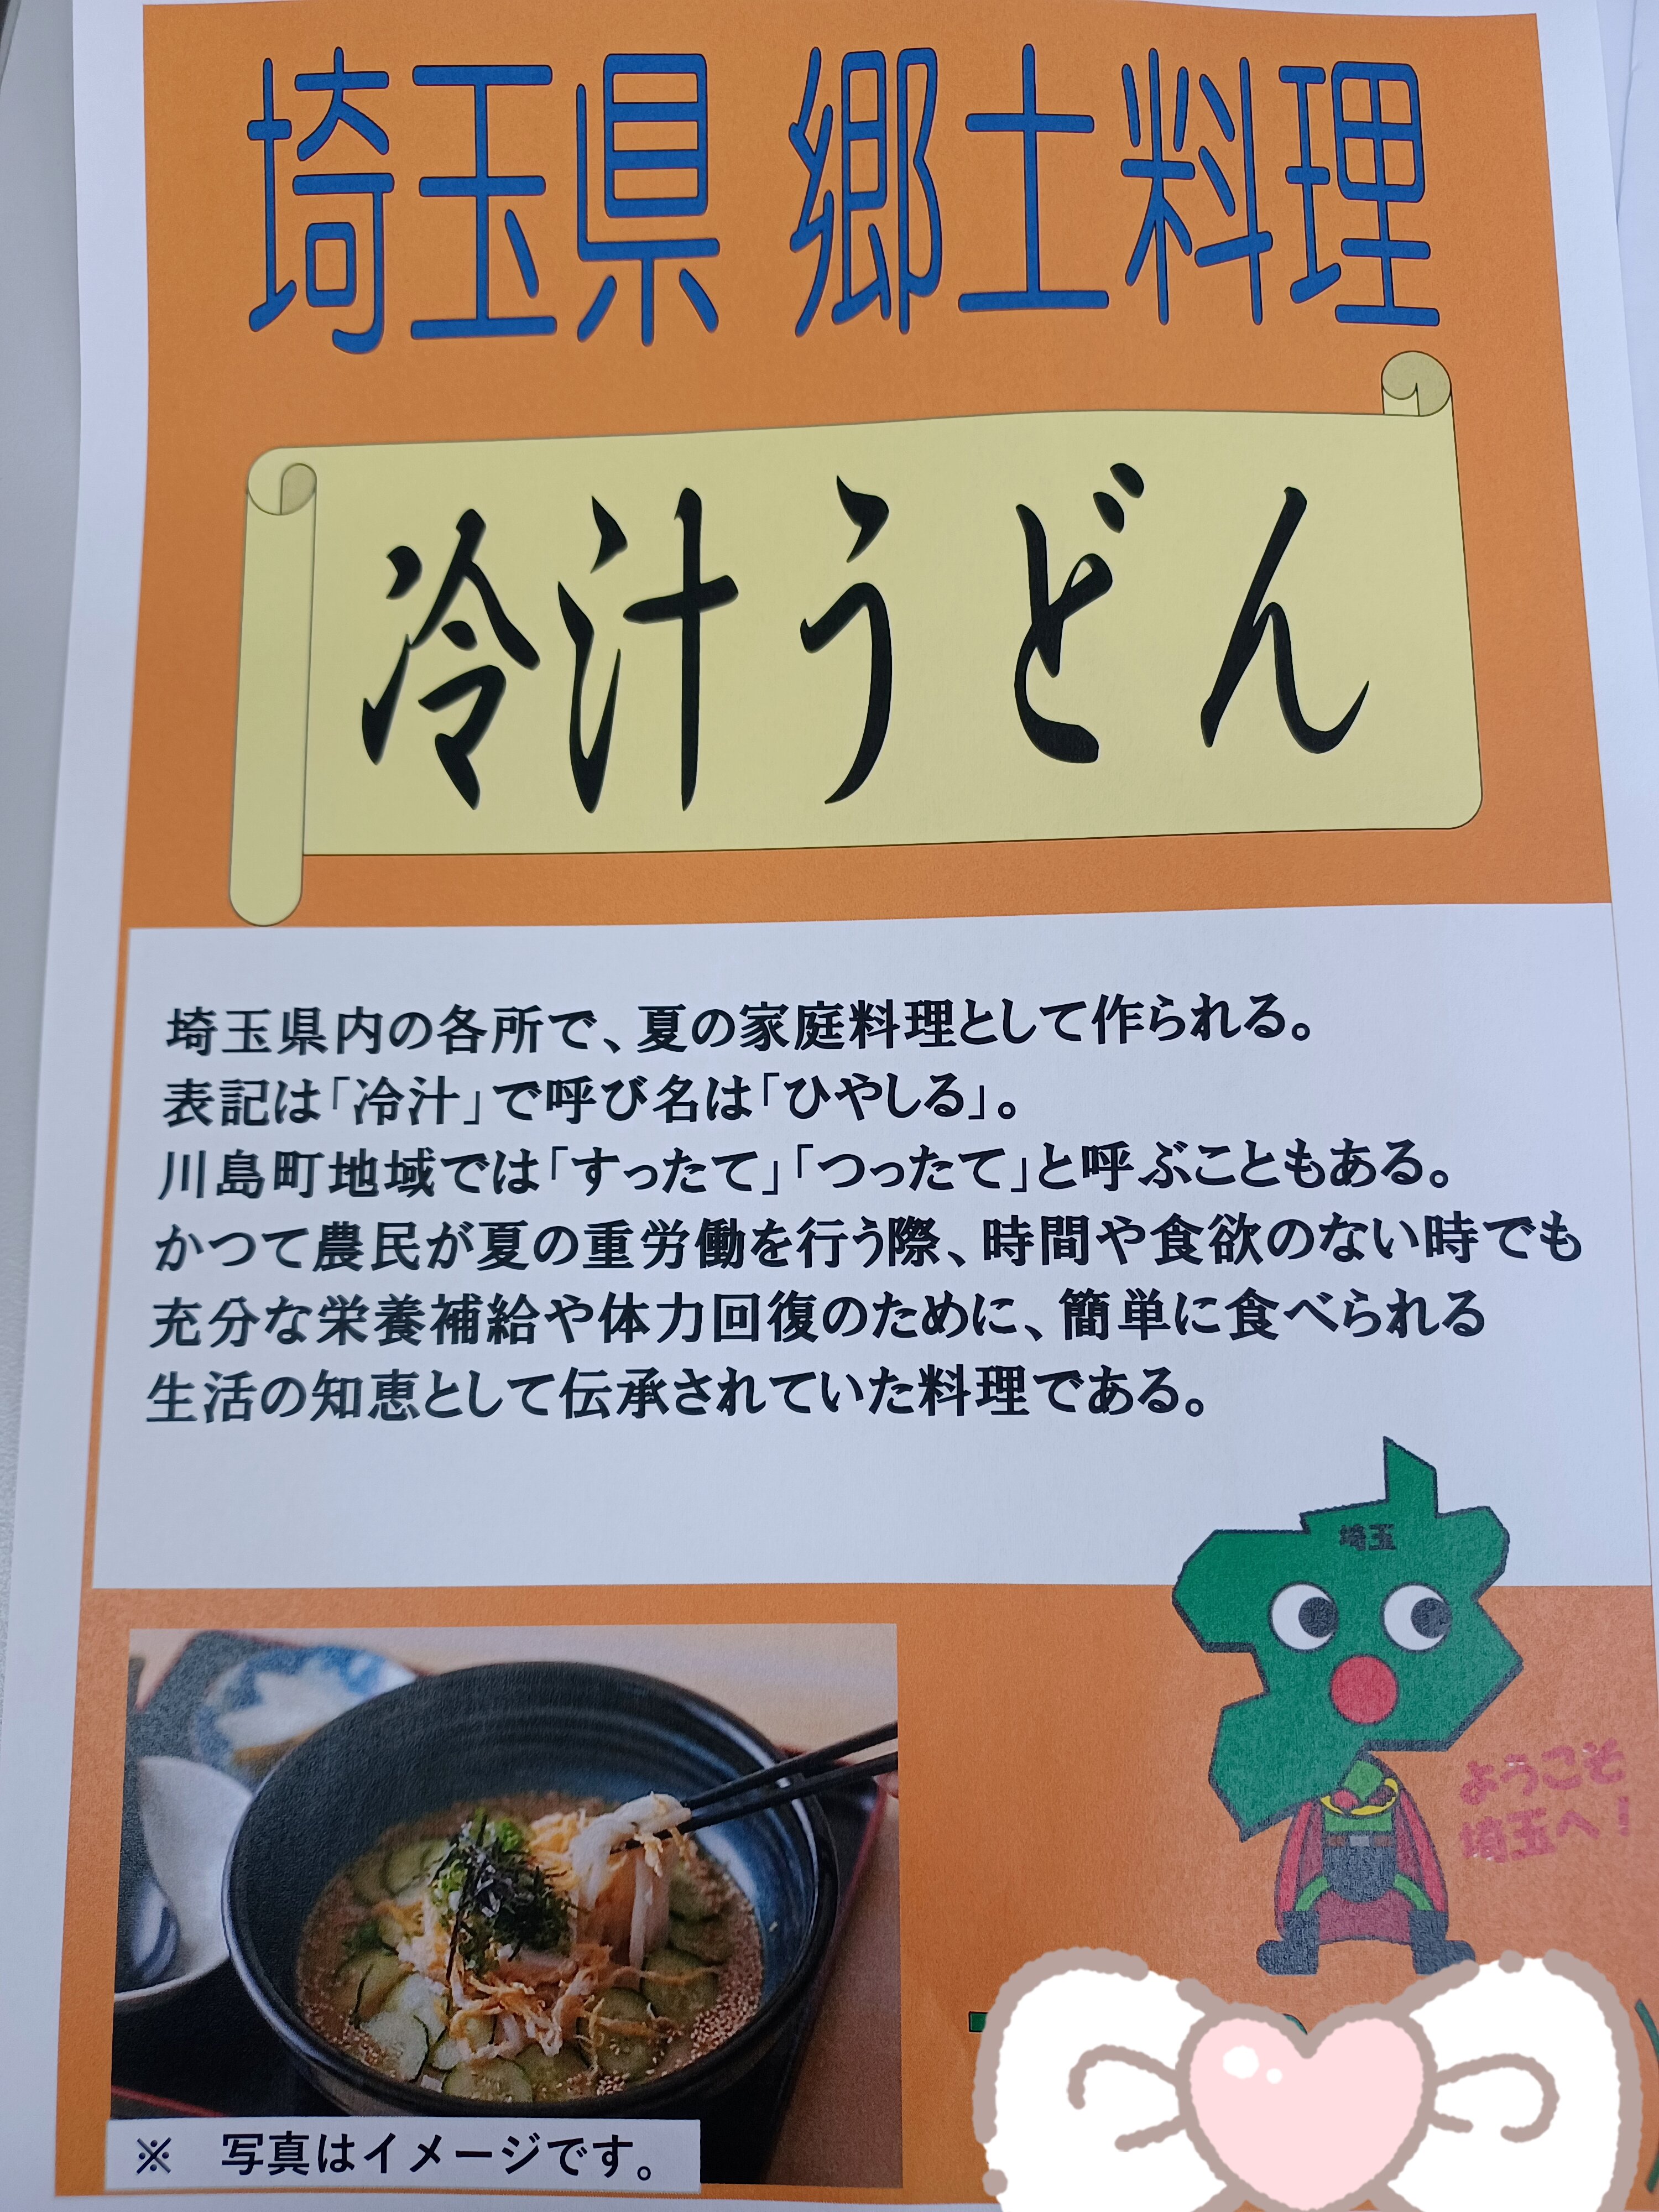 埼玉県 郷土料理
冷汁うどん
埼玉県内の各所で、夏の家庭料理として作られる。
表記は「冷汁」で呼び名は「ひやしる」。
川島町地域では「すったて」「つったて」と呼ぶこともある。
かつて農民が夏の重労働を行う際、時間や食欲のない時でも
充分な栄養補給や体力回復のために、簡単に食べられる
生活の知恵として伝承されていた料理である。
埼玉
ようこそ
埼玉へ！
※　写真はイメージです。